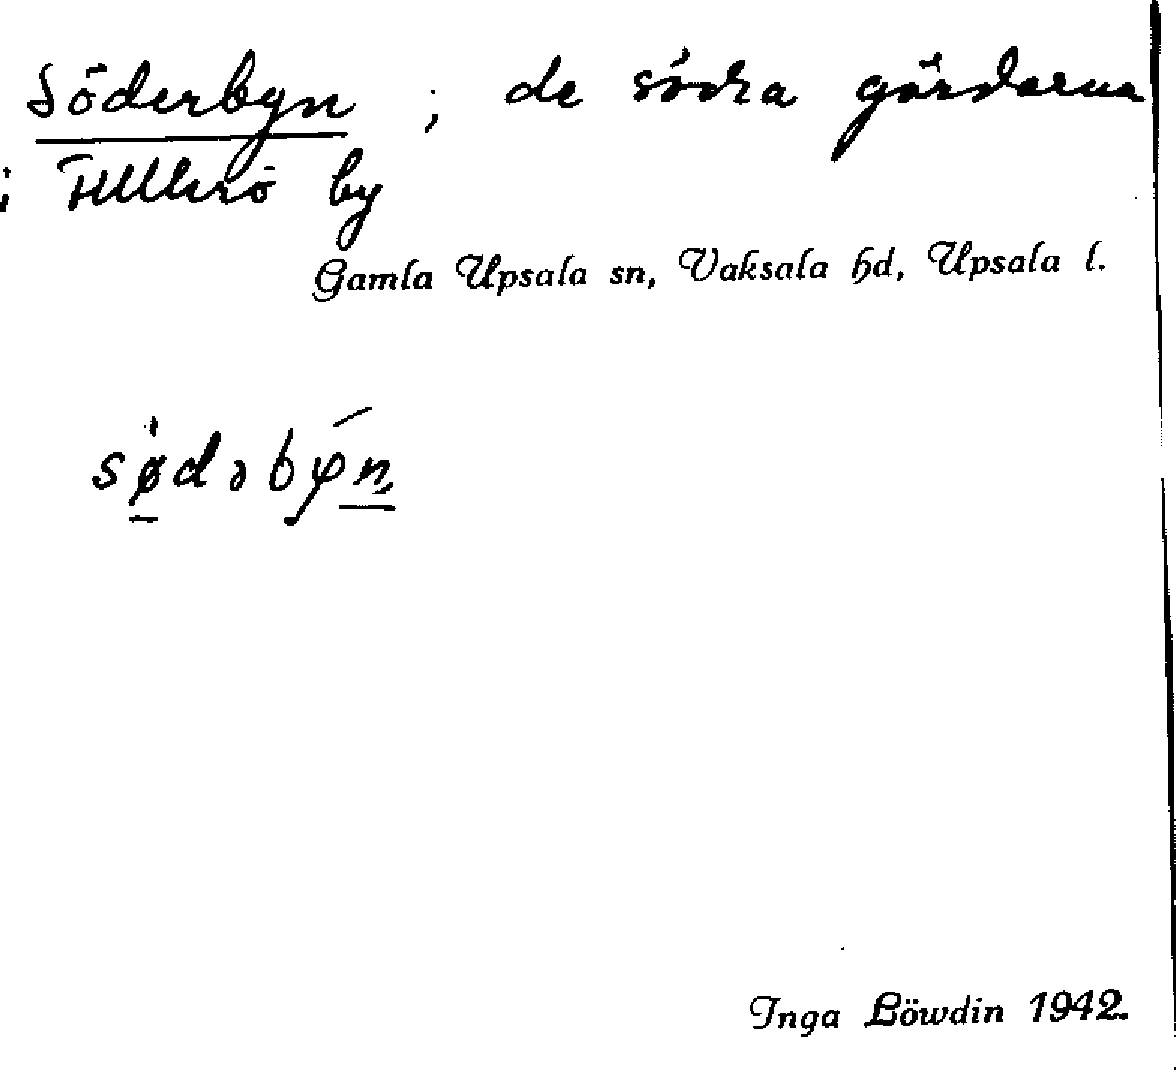 Söderbyn ; de södra gårdarna
i Fullerö by
Gamla Upsala sn, Vaksala hd, Upsala l.
Inga Löwdin 1942.